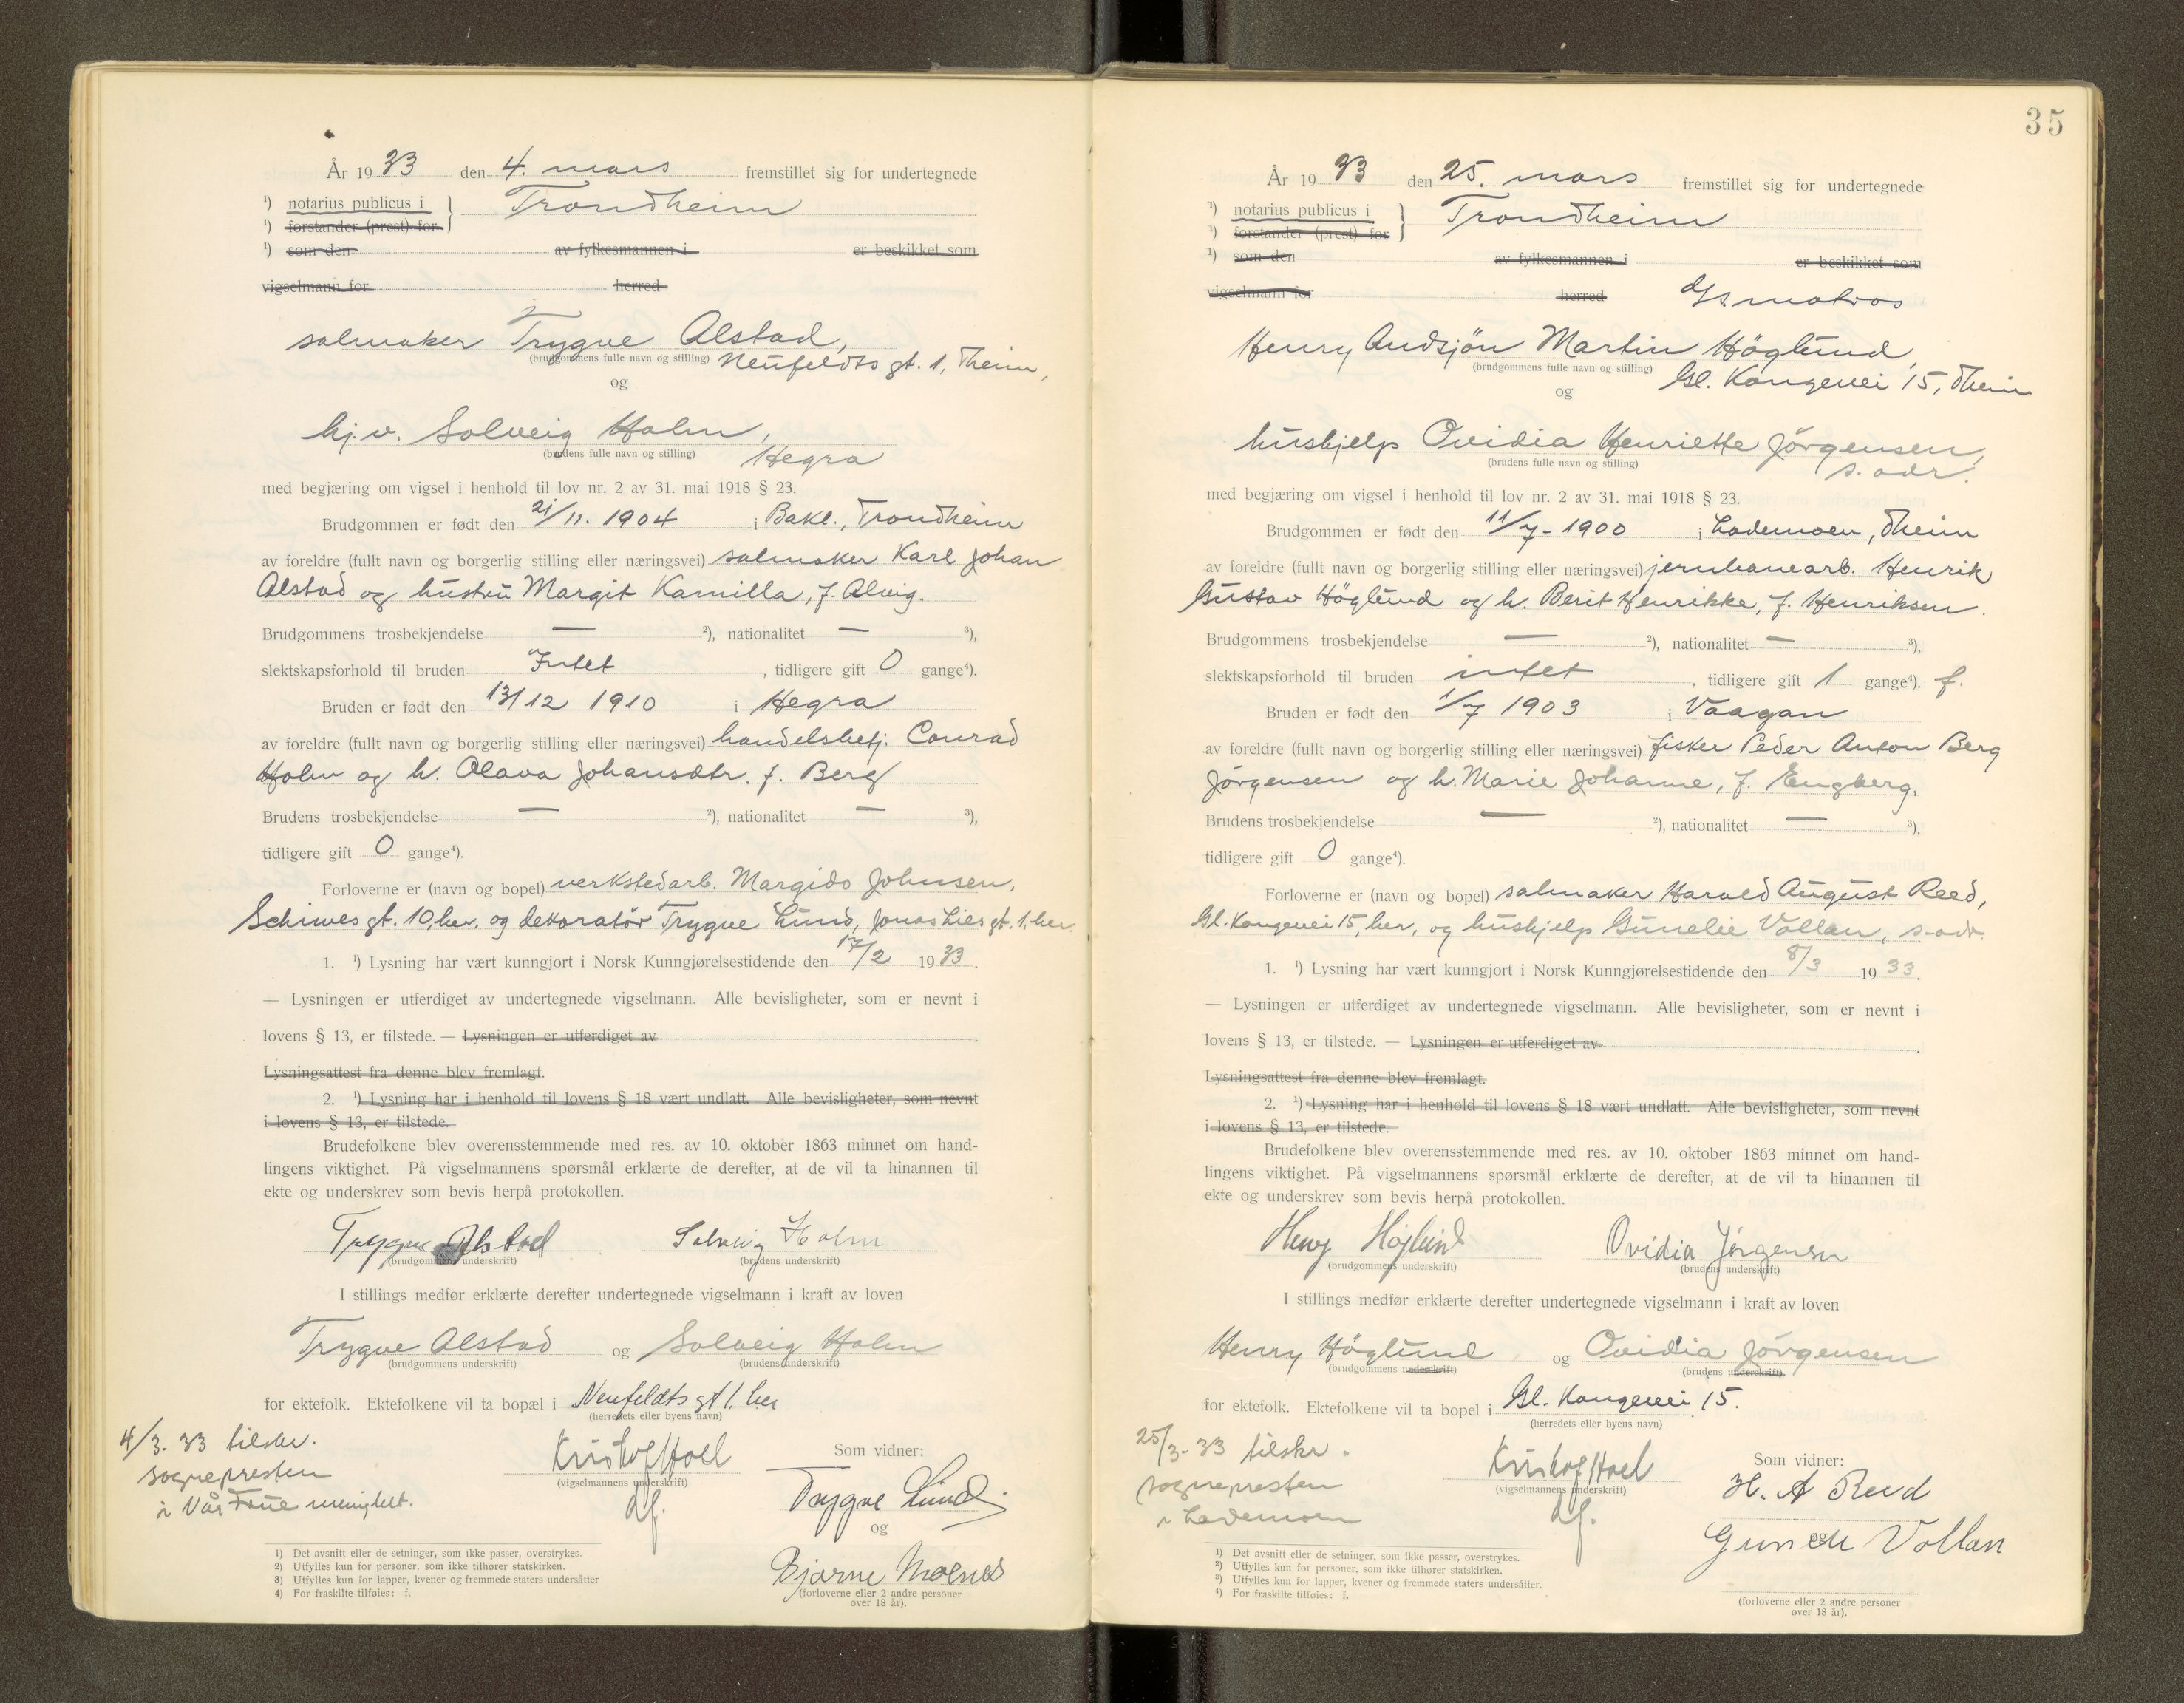 År 1933 den 4. mars fremstillet sig for undertegnede
¹) notarius publicus i Trondheim
¹) forstander (prest) for
¹) som den av fylkesmannen i er beskikket som
vigselmann for herred
salmaker Trygve Alstad,
(brudgommens fulle navn og stilling) Neufeldts gt. 1, Theim,
og
hj.v. Solveig Holm,
(brudens fulle navn og stilling) Hegra
med begjæring om vigsel i henhold til lov nr. 2 av 31. mai 1918 § 23.
Brudgommen er født den 21/11. 1904 i Bakl., Trondheim
av foreldre (fullt navn og borgerlig stilling eller næringsvei) salmaker Karl Johan
Alstad og hustru Margit Kamilla, f. Alvig.
Brudgommens trosbekjendelse — ²), nationalitet — ³),
slektskapsforhold til bruden Intet, tidligere gift 0 gange⁴).
Bruden er født den 13/12 1910 i Hegra
av foreldre (fullt navn og borgerlig stilling eller næringsvei) handelsbetj. Conrad
Holm og h. Olava Johansdtr. f. Berg
Brudens trosbekjendelse — ²), nationalitet — ³),
tidligere gift 0 gange⁴).
Forloverne er (navn og bopel) verkstedarb. Margido Johnsen,
Schives gt. 10, her, og dekoratör Trygve Lund, Jonas Lies gt. 1, her.
1. ¹) Lysning har vært kunngjort i Norsk Kunngjørelsestidende den 17/2 1933.
— Lysningen er utferdiget av undertegnede vigselmann. Alle bevisligheter, som er nevnt i
lovens § 13, er tilstede. — Lysningen er utferdiget av
Lysningsattest fra denne blev fremlagt.
2. ¹) Lysning har i henhold til lovens § 18 vært undlatt. Alle bevisligheter, som nevnt
i lovens § 13, er tilstede.
Brudefolkene blev overensstemmende med res. av 10. oktober 1863 minnet om hand-
lingens viktighet. På vigselmannens spørsmål erklærte de derefter, at de vil ta hinannen til
ekte og underskrev som bevis herpå protokollen.
Trygve Alstad Solveig Holm
(brudgommens underskrift) (brudens underskrift)
I stillings medfør erklærte derefter undertegnede vigselmann i kraft av loven
Trygve Alstad og Solveig Holm
(brudgommens underskrift) (brudens underskrift)
for ektefolk. Ektefolkene vil ta bopæl i Neufeldts gt 1. her
(herredets eller byens navn)
4/3. 33 tilskr.
sognepresten
i Vår Frue menighet.
Kristof Hoel
(vigselmannens underskrift)
df.
Som vidner:
Trygve Lund
og
Bjarne Moenes
(forloverne eller 2 andre personer
over 18 år).
1) Det avsnitt eller de setninger, som ikke passer, overstrykes.
2) Utfylles kun for personer, som ikke tilhører statskirken.
3) Utfylles kun for lapper, kvener og fremmede staters undersåtter
4) For fraskilte tilføies: f.
35
År 1933 den 25. mars fremstillet sig for undertegnede
¹) notarius publicus i Trondheim
¹) forstander (prest) for
¹) som den av fylkesmannen i er beskikket som
vigselmann for herred d/s matros
Henry Andsjön Martin Höglund,
(brudgommens fulle navn og stilling) Gl. Kongevei 15, Theim
og
hushjelp Ovidia Henriette Jörgensen,
(brudens fulle navn og stilling) s. adr.
med begjæring om vigsel i henhold til lov nr. 2 av 31. mai 1918 § 23.
Brudgommen er født den 11/7 - 1900 i Lademoen, Theim
av foreldre (fullt navn og borgerlig stilling eller næringsvei) jernbanearb. Henrik
Gustav Höglund og h. Berit Henrikke, f. Henriksen.
Brudgommens trosbekjendelse — ²), nationalitet — ³),
slektskapsforhold til bruden intet, tidligere gift 1 gange⁴). f.
Bruden er født den 1/7 1903 i Vaagan
av foreldre (fullt navn og borgerlig stilling eller næringsvei) fisker Peder Anton Berg
Jörgensen og h. Marie Johanne, f. Engberg.
Brudens trosbekjendelse — ²), nationalitet — ³),
tidligere gift 0 gange⁴).
Forloverne er (navn og bopel) salmaker Harald August Reed,
Gl. Kongevei 15, her, og hushjelp Gunelie Vollan, s. adr.
1. ¹) Lysning har vært kunngjort i Norsk Kunngjørelsestidende den 8/3 1933.
— Lysningen er utferdiget av undertegnede vigselmann. Alle bevisligheter, som er nevnt i
lovens § 13, er tilstede. — Lysningen er utferdiget av
Lysningsattest fra denne blev fremlagt.
2. ¹) Lysning har i henhold til lovens § 18 vært undlatt. Alle bevisligheter, som nevnt
i lovens § 13, er tilstede.
Brudefolkene blev overensstemmende med res. av 10. oktober 1863 minnet om hand-
lingens viktighet. På vigselmannens spørsmål erklærte de derefter, at de vil ta hinannen til
ekte og underskrev som bevis herpå protokollen.
Henry Höglund Ovidia Jörgensen
(brudgommens underskrift) (brudens underskrift)
I stillings medfør erklærte derefter undertegnede vigselmann i kraft av loven
Henry Höglund og Ovidia Jörgensen
(brudgommens underskrift) (brudens underskrift)
for ektefolk. Ektefolkene vil ta bopel i Gl. Kongevei 15.
(herredets eller byens navn)
25/3 - 33 tilskr.
sognepresten
i Lademoen
Kristof Hoel
(vigselmannens underskrift)
df.
Som vidner:
H. A Reed
og
Gunelie Vollan
(forloverne eller 2 andre personer
over 18 år).
1) Det avsnitt eller de setninger, som ikke passer, overstrykes.
2) Utfylles kun for personer, som ikke tilhører statskirken.
3) Utfylles kun for lapper, kvener og fremmede staters undersåtter.
4) For fraskilte tilføies: f.